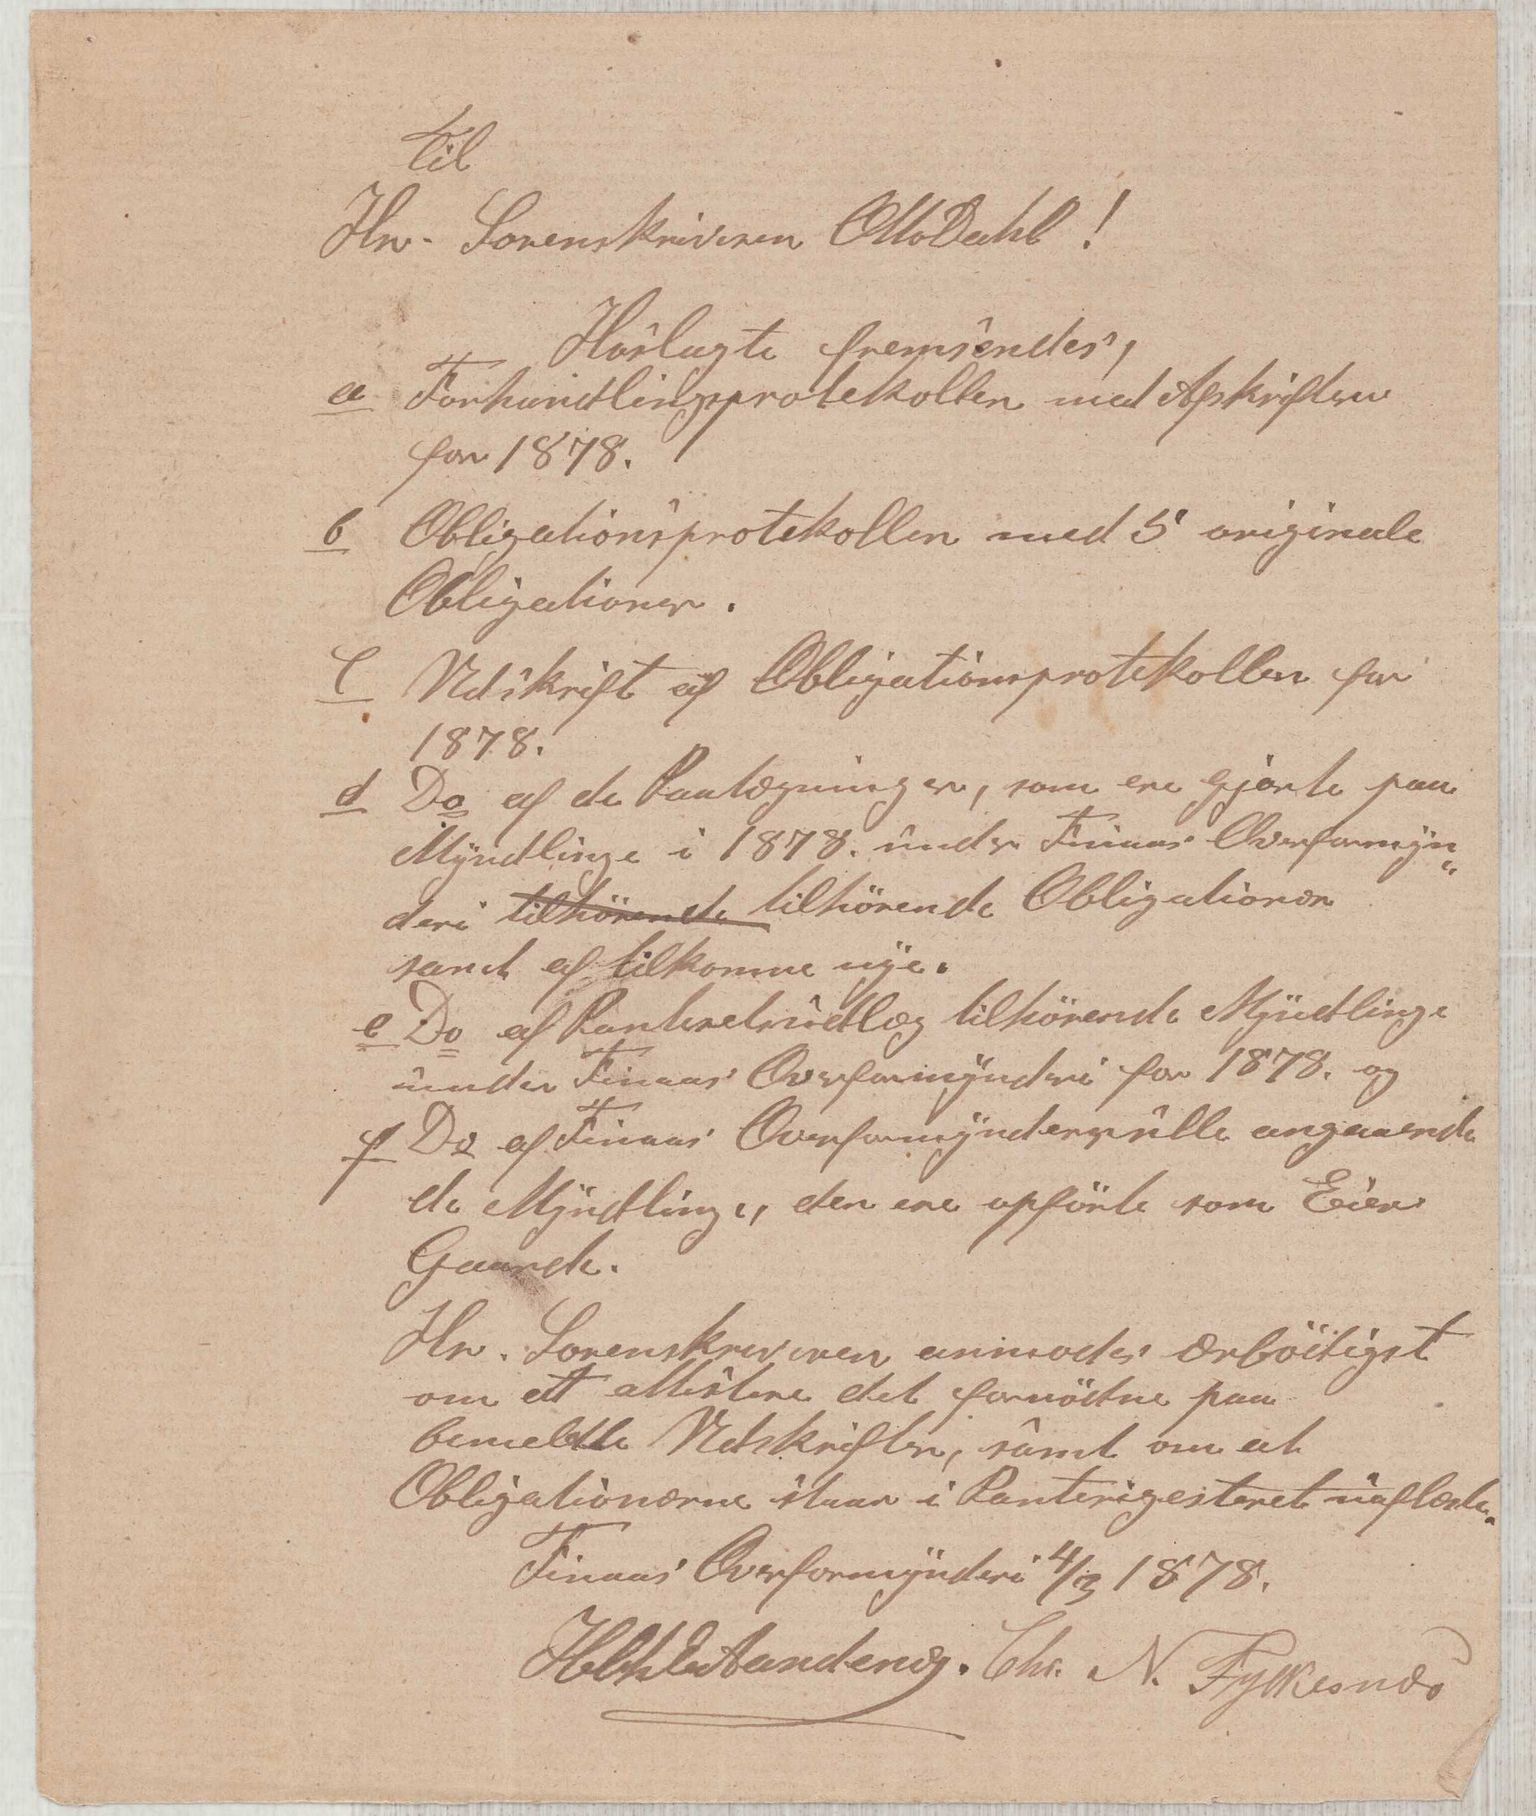 Til
Hr. Sorenskriveren Otto Dahl!
Hoslagte fremsendes,
a Forhandlingsprotekollen med Afskriften
for 1878.
b Obligationsprotekollen med 5 originale
Obligationer.
c Udskrift af Obligationsprotekollen for
1878.
d Do af de Paategninger, som ere gjorte paa
Myndlinge i 1878. under Finaas Overformyn„
deri tilhörende tilhörende Obligationer
samt af tilkomne nye.
e Do af Panteretsudlæg tilhörende Myndlinge
under Finaas Overformynderi for 1878. og
f Do af Finaas Overformynderrulle angaaende
de Myndlinge, der ere opförte som Eiere
Gaarde.
Hr. Sorenskriveren anmodes ærböidigst
om at attestere det fornödne paa
bemeldte Udskrifter, samt om at
Obligationerne staar i Panterigesteret uaflæste.
Finaas Overformynderi 4/3 1878.
Aandenæs. Chr. N. Fykesnæs